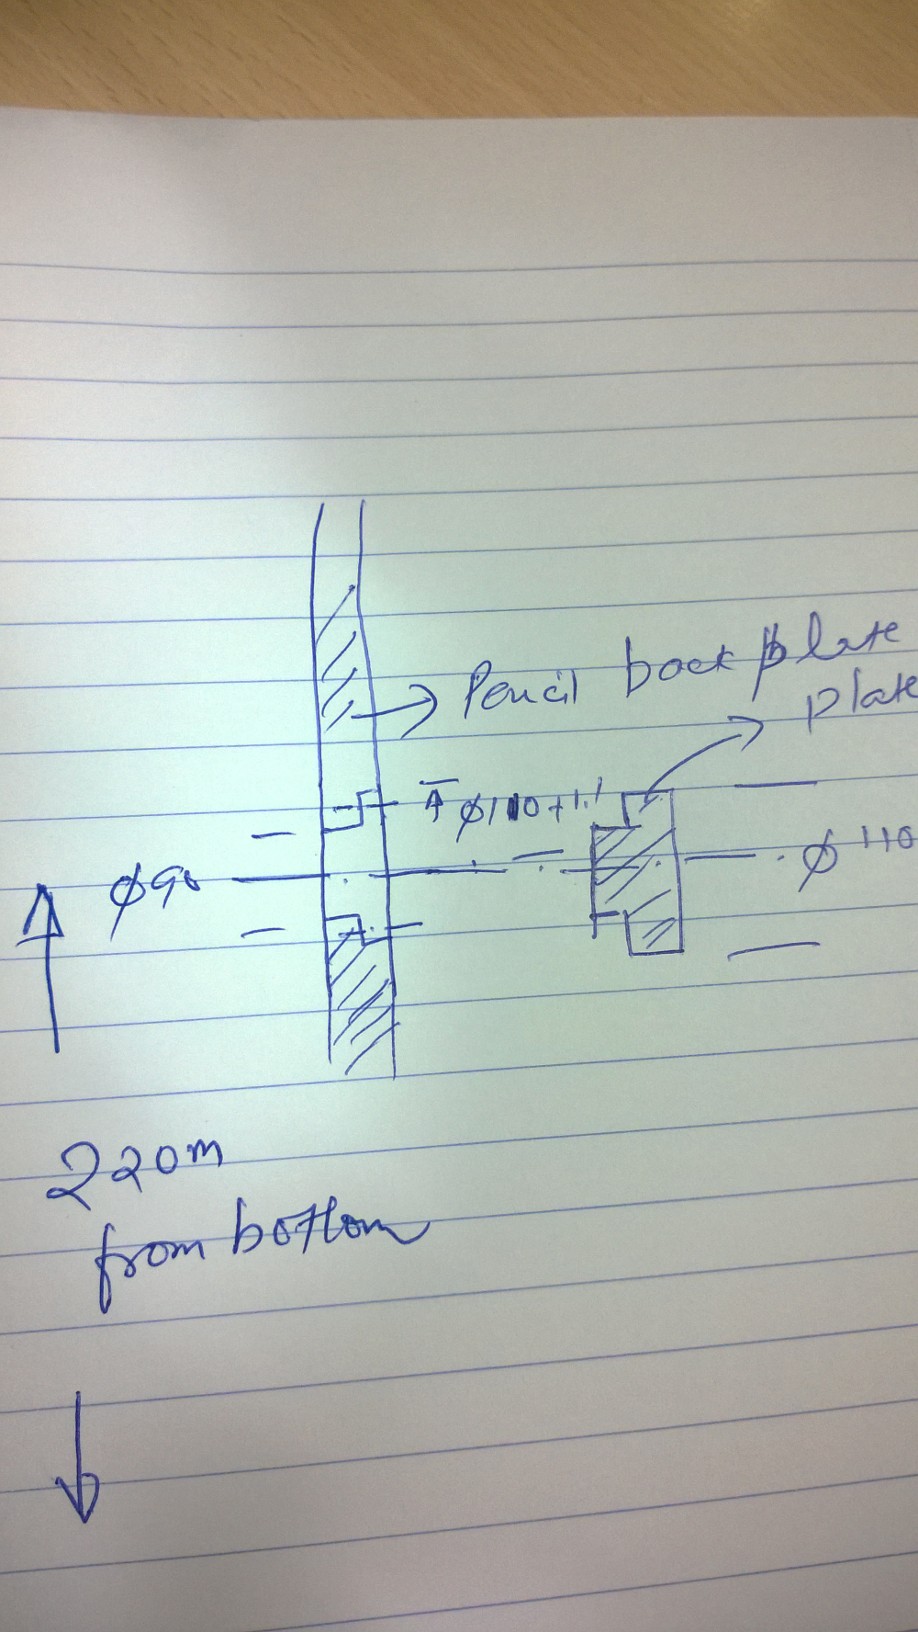 Pencil back plate
plate
φ110+1.1
φ90
φ110
220m
from bottom